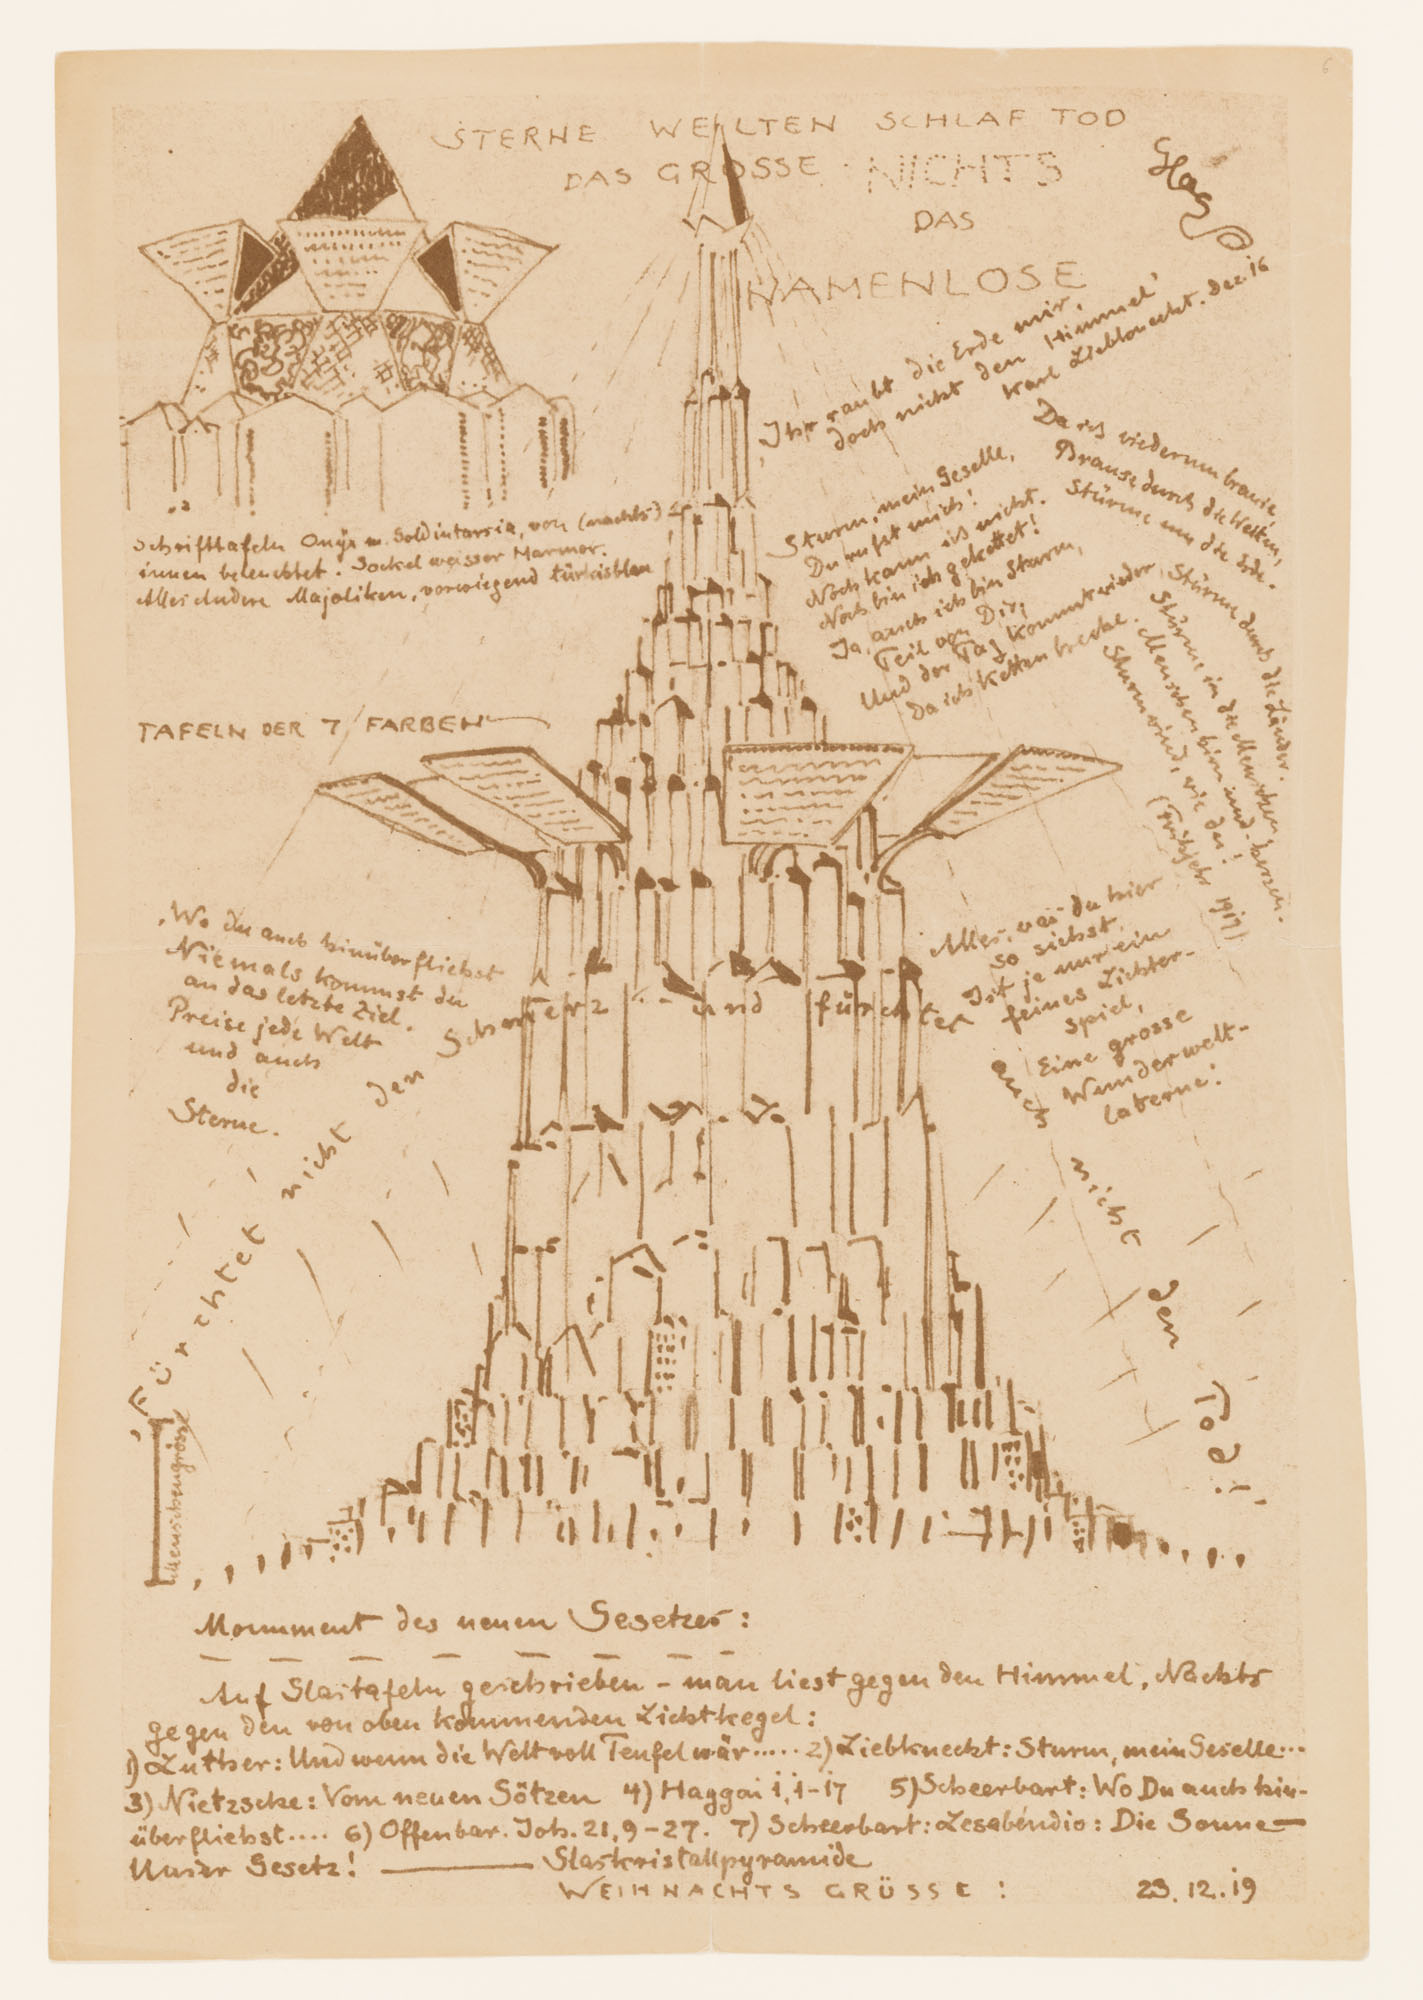 6
STERNE WELTEN SCHLAF TOD
DAS GROSSE NICHTS
DAS
NAMENLOSE
Glas
Ihr raubt die Erde mir,
doch nicht den Himmel'
Karl Liebknecht. Dez. 16
Schrifttafeln Onyx m. Goldintarsia, von (nachts)
innen beleuchtet. Sockel weisser Marmor.
Alles Andere Majoliken, vorwiegend türkisblau
Sturm, mein Geselle,
Du rufst mich!
Noch kann ich nicht.
Noch bin ich gekettet!
Ja, auch ich bin Sturm,
Teil von Dir,
Und der Tag kommt wieder
Da ich Ketten breche.
Da ich wiederum brause,
Brause durch die Welten,
Stürme um die Erde.
Stürme durch die Länder.
Stürme in die Menschen
Menschenhirn und -herzen.
Sturmwind, wie du!
(Frühjahr 1917)
TAFELN DER 7 FARBEN
'Wo du auch hinüberfliehst
Niemals kommst du
an das letzte Ziel.
Preise jede Welt
und auch
die
Sterne.
Alles, was du hier
so siehst,
Ist je nur ein
feines Lichter-
spiel,
Eine grosse
Wunderwelt-
laterne!
'Fürchtet nicht den Schmerz und fürchtet auch nicht den Tod!'
Menschengrösse
Monument des neuen Gesetzes:
Auf Glastafeln geschrieben - man liest gegen den Himmel, Nachts
gegen den von oben kommenden Lichtkegel:
1) Luther: Und wenn die Welt voll Teufel wär..... 2) Liebknecht: Sturm, mein Geselle...
3) Nietzsche: Vom neuen Götzen 4) Haggai 1,1-17 5) Scheerbart: Wo Du auch hin-
überfliehst.... 6) Offenbar. Joh. 21, 9-27. 7) Scheerbart: Lesabéndio: Die Sonne—
Unser Gesetz! ——— Glaskristallpyramide
WEIHNACHTSGRÜSSE: 23.12.19